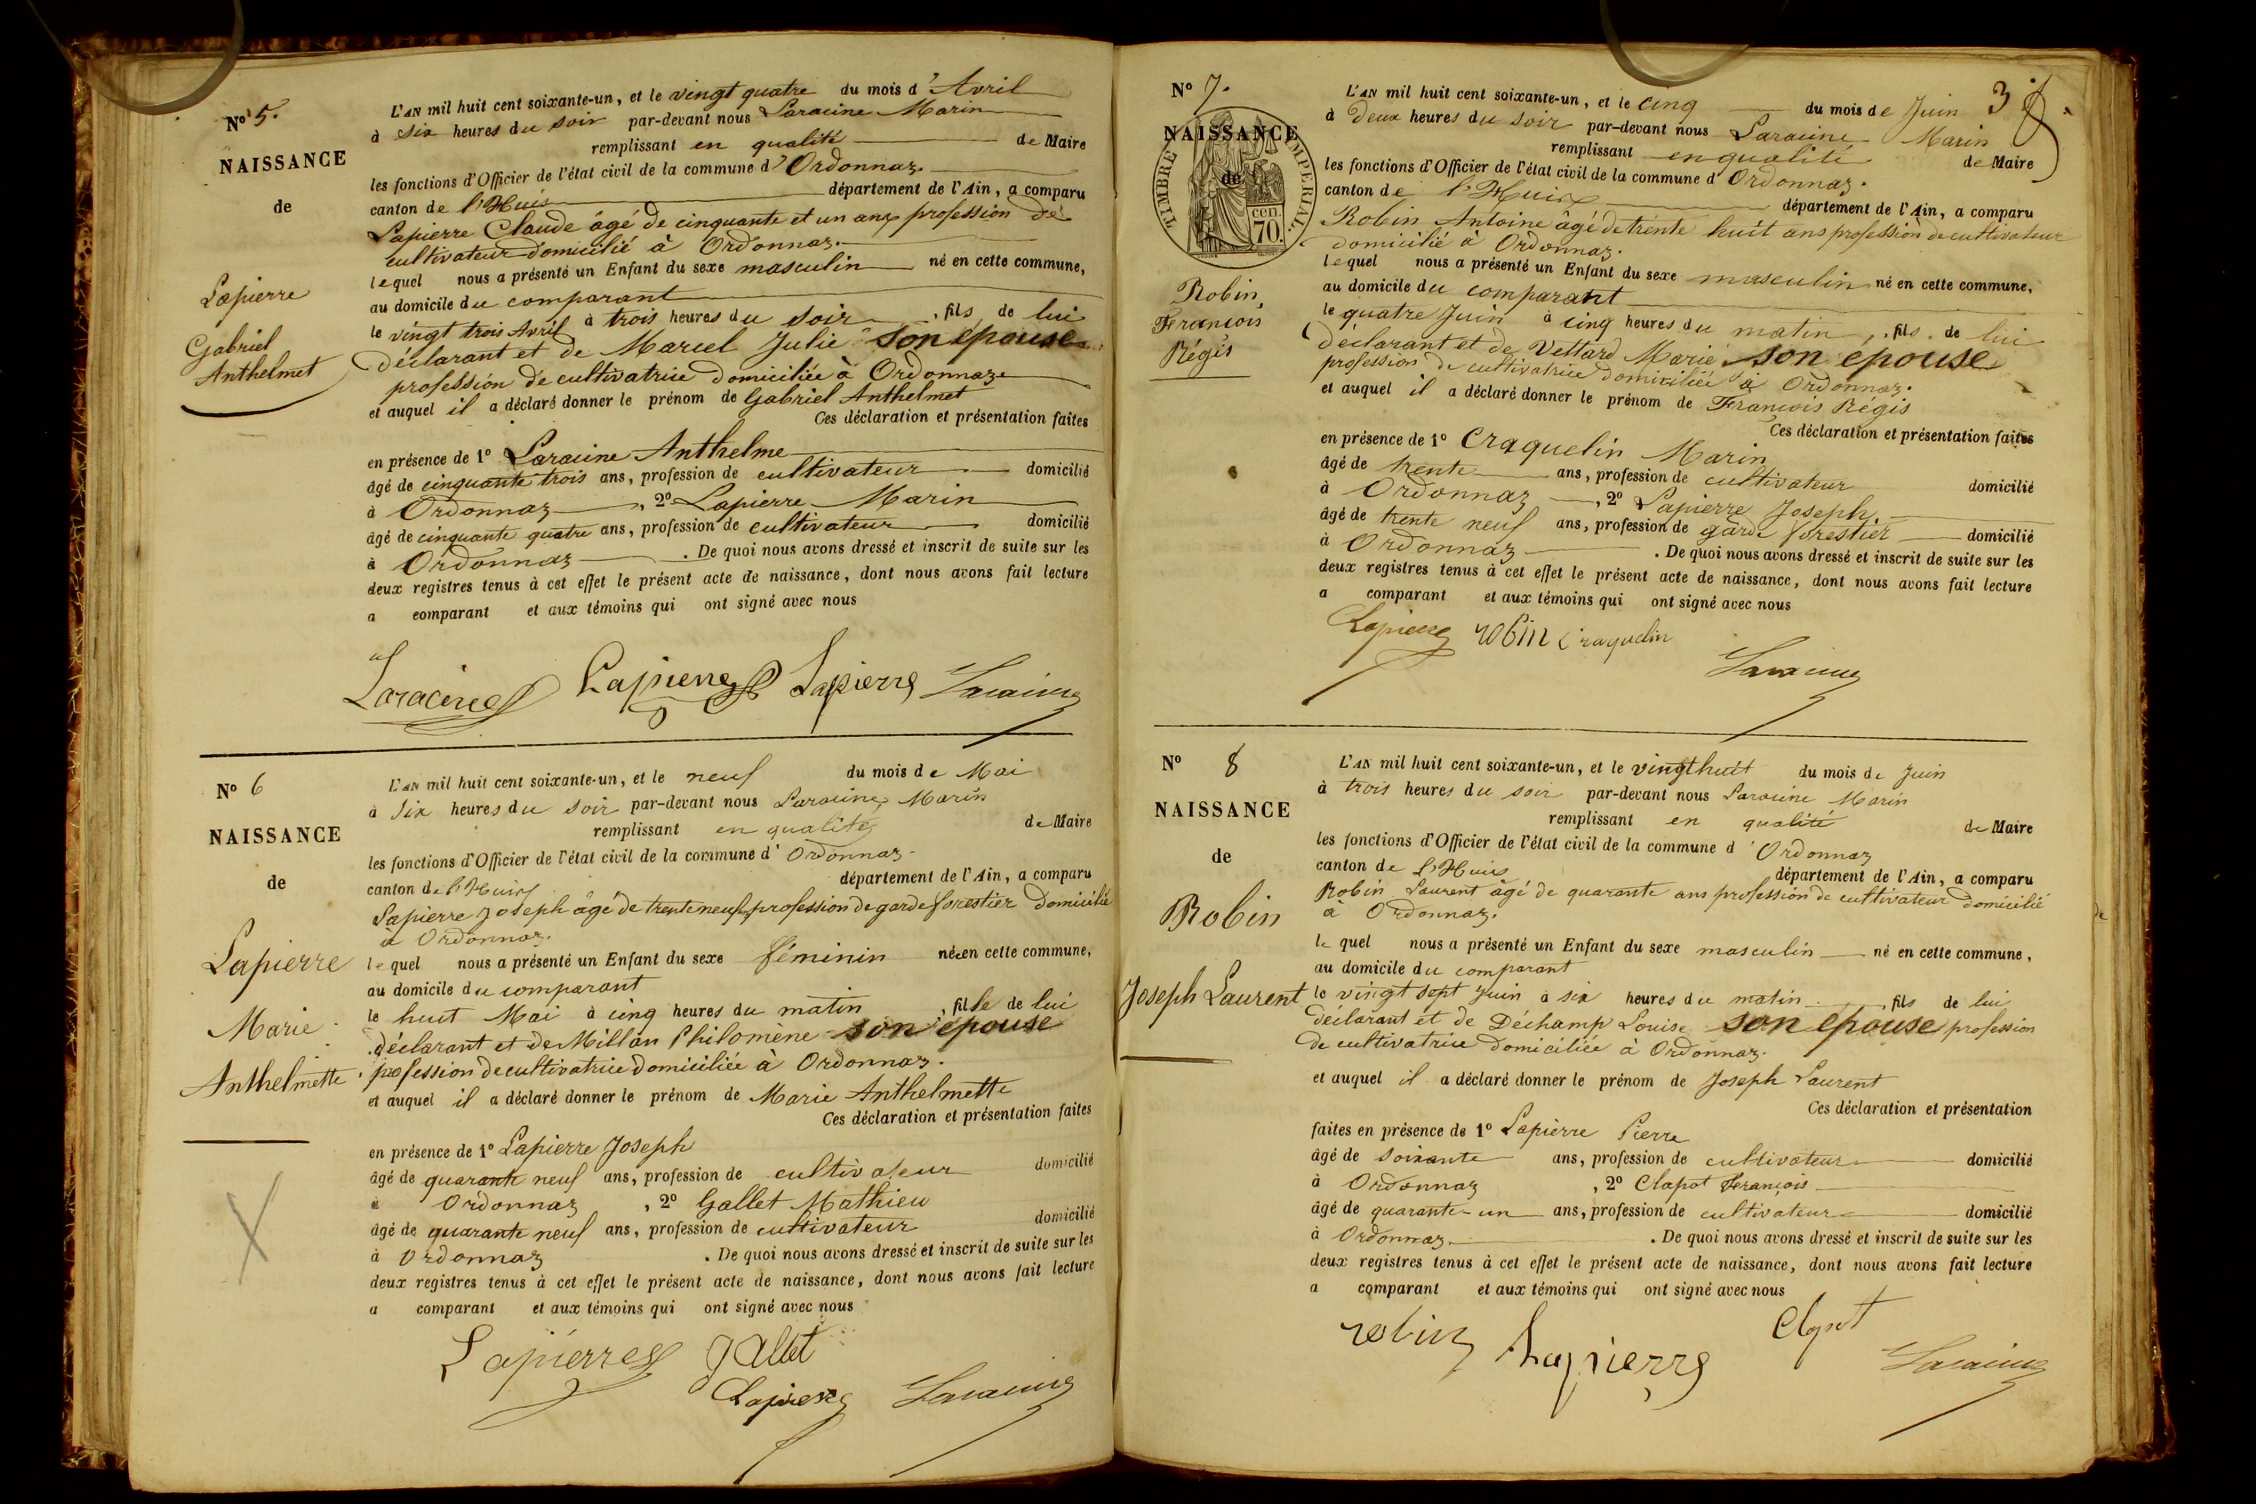 N° 5.
NAISSANCE
de
Lapierre
Gabriel
Anthelmet
L'AN mil huit cent soixante-un, et le vingt quatre du mois d'Avril
à six heures du soir par-devant nous Laracine Marin
remplissant en qualité de Maire
les fonctions d'Officier de l'état civil de la commune d'Ordonnaz
canton de l'Huis département de l'Ain, a comparu
Lapierre Claude âgé de cinquante et un ans profession de
cultivateur domicilié à Ordonnaz.
lequel nous a présenté un Enfant du sexe masculin né en cette commune,
au domicile du comparant
le vingt trois Avril à trois heures du soir, fils de lui
déclarant et de Marcel Julie son épouse
profession de cultivatrice domiciliée à Ordonnaz
et auquel il a déclaré donner le prénom de Gabriel Anthelmet
Ces déclaration et présentation faites
en présence de 1° Laracine Anthelme
âgé de cinquante trois ans, profession de cultivateur domicilié
à Ordonnaz, 2° Lapierre Marin
âgé de cinquante quatre ans, profession de cultivateur domicilié
à Ordonnaz. De quoi nous avons dressé et inscrit de suite sur les
deux registres tenus à cet effet le présent acte de naissance, dont nous avons fait lecture
a comparant et aux témoins qui ont signé avec nous
Laracine Lapierre Lapierre Laracine
N° 6
NAISSANCE
de
Lapierre
Marie
Anthelmette
L'AN mil huit cent soixante-un, et le neuf du mois de Mai
à six heures du soir par-devant nous Laracine Marin
remplissant en qualité de Maire
les fonctions d'Officier de l'état civil de la commune d'Ordonnaz
canton de l'Huis département de l'Ain, a comparu
Lapierre Joseph âgé de trente neuf, profession de garde forestier domicilié
à Ordonnaz.
lequel nous a présenté un Enfant du sexe féminin née en cette commune,
au domicile du comparant
le huit Mai à cinq heures du matin, fille de lui
déclarant et de Millan Philomène son épouse
profession de cultivatrice domiciliée à Ordonnaz.
et auquel il a déclaré donner le prénom de Marie Anthelmette
Ces déclaration et présentation faites
en présence de 1° Lapierre Joseph
âgé de quarante neuf ans, profession de cultivateur domicilié
à Ordonnaz, 2° Gallet Mathieu
âgé de quarante neuf ans, profession de cultivateur domicilié
à Ordonnaz. De quoi nous avons dressé et inscrit de suite sur les
deux registres tenus à cet effet le présent acte de naissance, dont nous avons fait lecture
a comparant et aux témoins qui ont signé avec nous
Lapierre Gallet
Lapierre Laracine
3
N° 7.
NAISSANCE
de
TIMBRE IMPERIAL
cen. 70.
Robin,
François
Régis
L'AN mil huit cent soixante-un, et le cinq du mois de Juin
à Deux heures du soir par-devant nous Laracine Marin
remplissant en qualité de Maire
les fonctions d'Officier de l'état civil de la commune d'Ordonnaz.
canton de l'Huis département de l'Ain, a comparu
Robin Antoine âgé de trente huit ans profession de cultivateur
domicilié à Ordonnaz.
lequel nous a présenté un Enfant du sexe masculin né en cette commune,
au domicile du comparant
le quatre Juin à cinq heures du matin, fils de lui
déclarant et de Vettard Marie son épouse
profession de cultivatrice domiciliée à Ordonnaz.
et auquel il a déclaré donner le prénom de François Régis
Ces déclaration et présentation faites
en présence de 1° Craquelin Marin
âgé de trente ans, profession de cultivateur domicilié
à Ordonnaz, 2° Lapierre Joseph,
âgé de trente neuf ans, profession de garde forestier domicilié
à Ordonnaz. De quoi nous avons dressé et inscrit de suite sur les
deux registres tenus à cet effet le présent acte de naissance, dont nous avons fait lecture
a comparant et aux témoins qui ont signé avec nous
Lapierre robin Craquelin
Laracine
N° 8
NAISSANCE
de
Robin
Joseph Laurent
L'AN mil huit cent soixante-un, et le vingt huit du mois de Juin
à trois heures du soir par-devant nous Laracine Marin
remplissant en qualité de Maire
les fonctions d'Officier de l'état civil de la commune d'Ordonnaz
canton de l'Huis département de l'Ain, a comparu
Robin Laurent âgé de quarante ans profession de cultivateur domicilié
à Ordonnaz.
lequel nous a présenté un Enfant du sexe masculin né en cette commune,
au domicile du comparant
le vingt sept Juin à six heures du matin, fils de lui
déclarant et de Déchamp Louise son épouse profession
de cultivatrice domiciliée à Ordonnaz.
et auquel il a déclaré donner le prénom de Joseph Laurent
Ces déclaration et présentation
faites en présence de 1° Lapierre Pierre
âgé de soixante ans, profession de cultivateur domicilié
à Ordonnaz, 2° Clapot François
âgé de quarante-un ans, profession de cultivateur domicilié
à Ordonnaz. De quoi nous avons dressé et inscrit de suite sur les
deux registres tenus à cet effet le présent acte de naissance, dont nous avons fait lecture
a comparant et aux témoins qui ont signé avec nous
robin Lapierre Clapot
Laracine